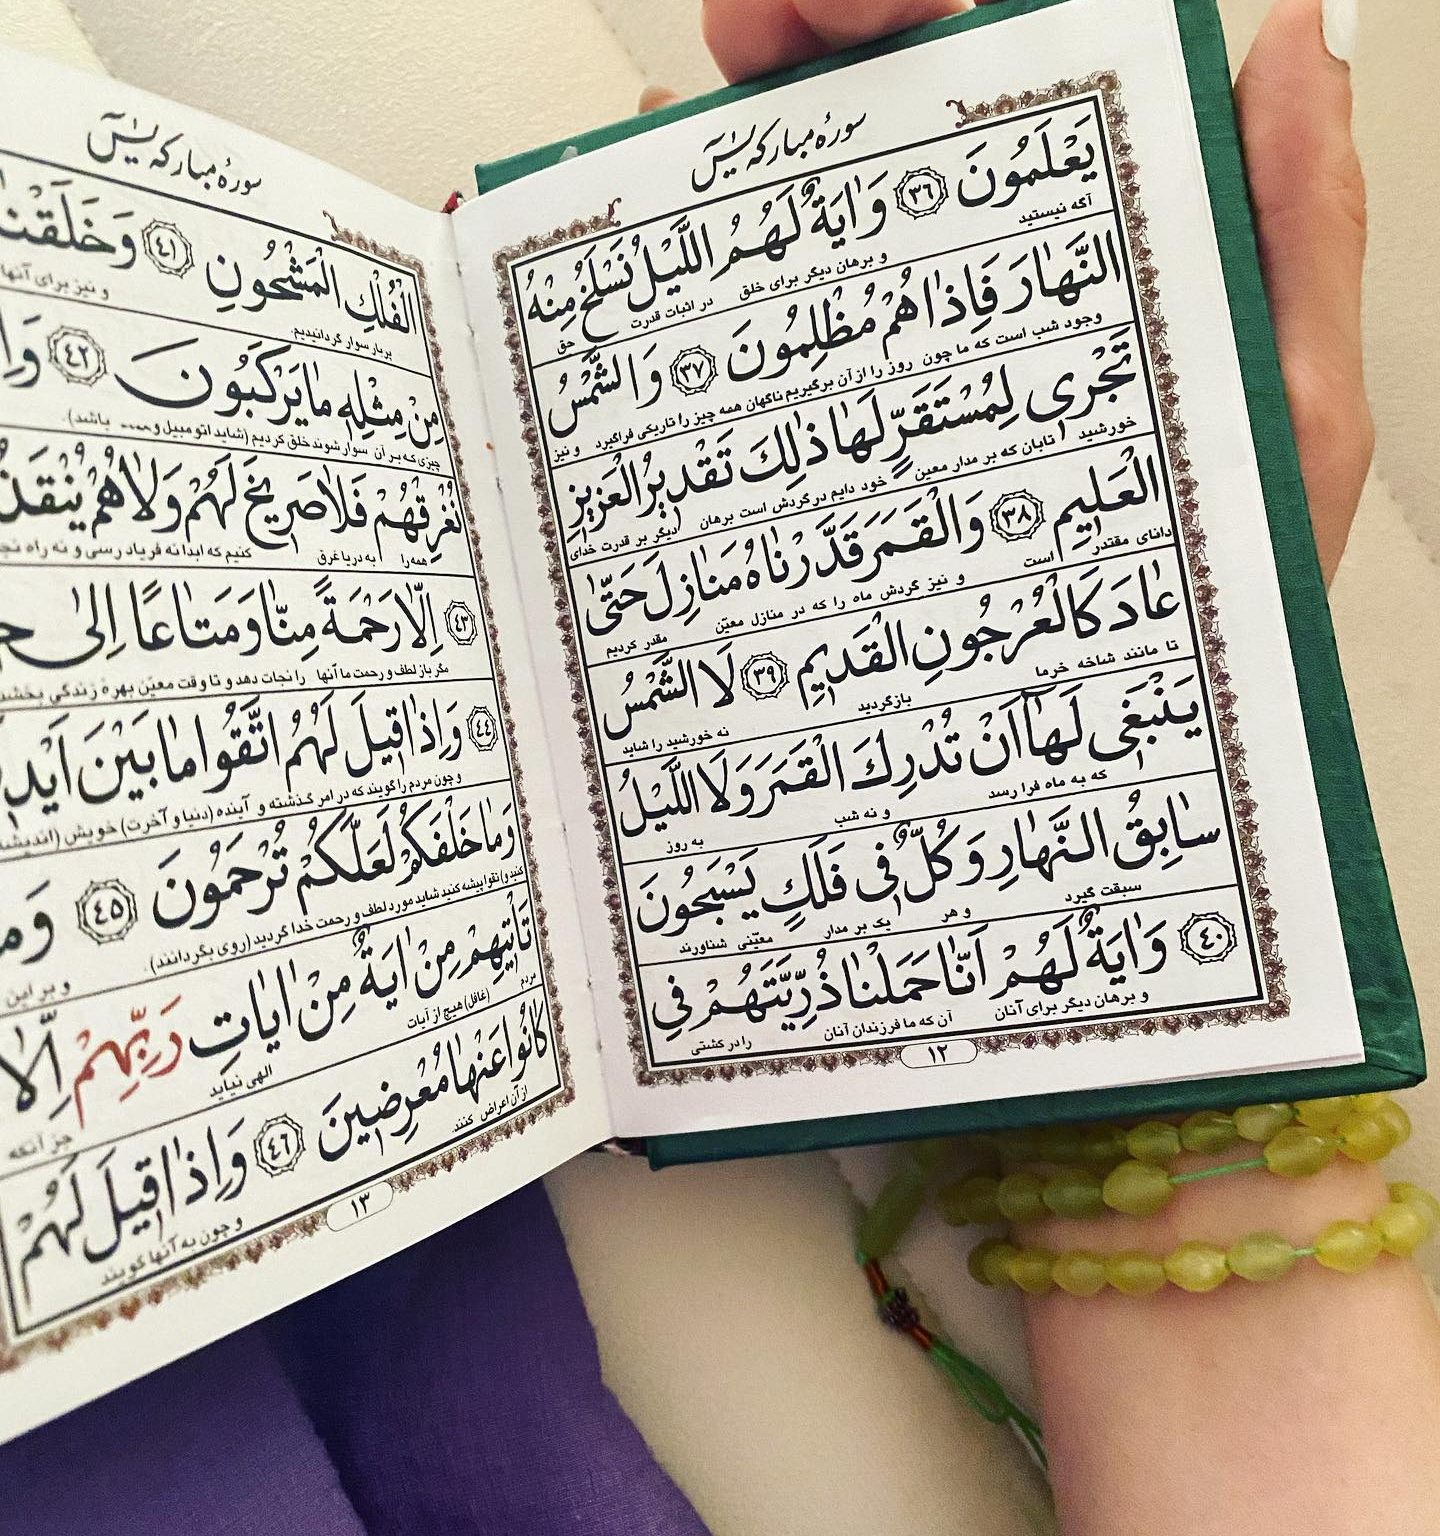 سورهٔ مبارکه یٰسٓ
يَعْلَمُونَ ﴿٣٦﴾ وَاٰيَةٌ لَهُمُ اللَّيْلُ نَسْلَخُ مِنْهُ
آگه نیستید و برهان دیگر برای خلق در اثبات قدرت حق
النَّهٰارَ فَاِذٰا هُمْ مُظْلِمُونَ ﴿٣٧﴾ وَ الشَّمْسُ
وجود شب است که ما چون روز را از آن برگیریم ناگهان همه چیز را تاریکی فراگیرد و نیز
تَجْرى لِمُسْتَقَرٍّ لَهٰا ذٰلِكَ تَقْديرُ الْعَزيزِ
خورشید تابان که بر مدار معین خود دایم در گردش است برهان دیگر بر قدرت خدای
الْعَليمِ ﴿٣٨﴾ وَالْقَمَرَ قَدَّرْنٰاهُ مَنٰازِلَ حَتّٰى
دانای مقتدر است و نیز گردش ماه را که در منازل معیّن مقدر کردیم
عٰادَ كَالْعُرْجُونِ الْقَديمِ ﴿٣٩﴾ لَا الشَّمْسُ
تا مانند شاخه خرما بازگردید نه خورشید را شاید
يَنْبَغى لَهٰا اَنْ تُدْرِكَ الْقَمَرَ وَلَا اللَّيْلُ
که به ماه فرا رسد و نه شب به روز
سٰابِقُ النَّهٰارِ وَكُلٌّ فى فَلَكٍ يَسْبَحُونَ
سبقت گیرد و هر یک بر مدار معیّنی شناورند
﴿٤٠﴾ وَاٰيَةٌ لَهُمْ اَنّٰا حَمَلْنٰا ذُرِّيَّتَهُمْ فِى
و برهان دیگر برای آنان آن که ما فرزندان آنان را در کشتی
١٢
سورهٔ مبارکه یٰسٓ
الْفُلْكِ الْمَشْحُونِ ﴿٤١﴾ وَخَلَقْنٰا
پربار سوار گردانیدیم. و نیز برای آنها
مِنْ مِثْلِهِ مٰا يَرْكَبُونَ ﴿٤٢﴾
چیزی که بر آن سوار شوند خلق کردیم (شاید اتومبیل و... باشد).
نُغْرِقْهُمْ فَلٰا صَريخَ لَهُمْ وَلٰا هُمْ
همه را به دریا غرق کنیم که ابدا نه فریادرسی و نه راه
﴿٤٣﴾ اِلّٰا رَحْمَةً مِنّٰا وَمَتٰاعًا اِلٰى
مگر باز لطف و رحمت ما آنها را نجات دهد و تا وقت معیّن بهرهٔ زندگی
﴿٤٤﴾ وَاِذٰا قيلَ لَهُمُ اتَّقُوا مٰا بَيْنَ
و چون مردم را گویند که در امر گذشته و آینده (دنیا و آخرت) خویش
وَمٰا خَلْفَكُمْ لَعَلَّكُمْ تُرْحَمُونَ ﴿٤٥﴾
کنید و) تقوا پیشه کنید شاید مورد لطف و رحمت خدا گردید (روی بگردانند).
تَاْتيهِمْ مِنْ اٰيَةٍ مِنْ اٰيٰاتِ رَبِّهِمْ اِلّٰا
مردم (غافل) هیچ از آیات الهی نیاید جز آنکه
كٰانُوا عَنْهٰا مُعْرِضينَ ﴿٤٦﴾ وَاِذٰا قيلَ لَهُمْ
از آن اعراض کنند. و چون به آنها گویند
١٣